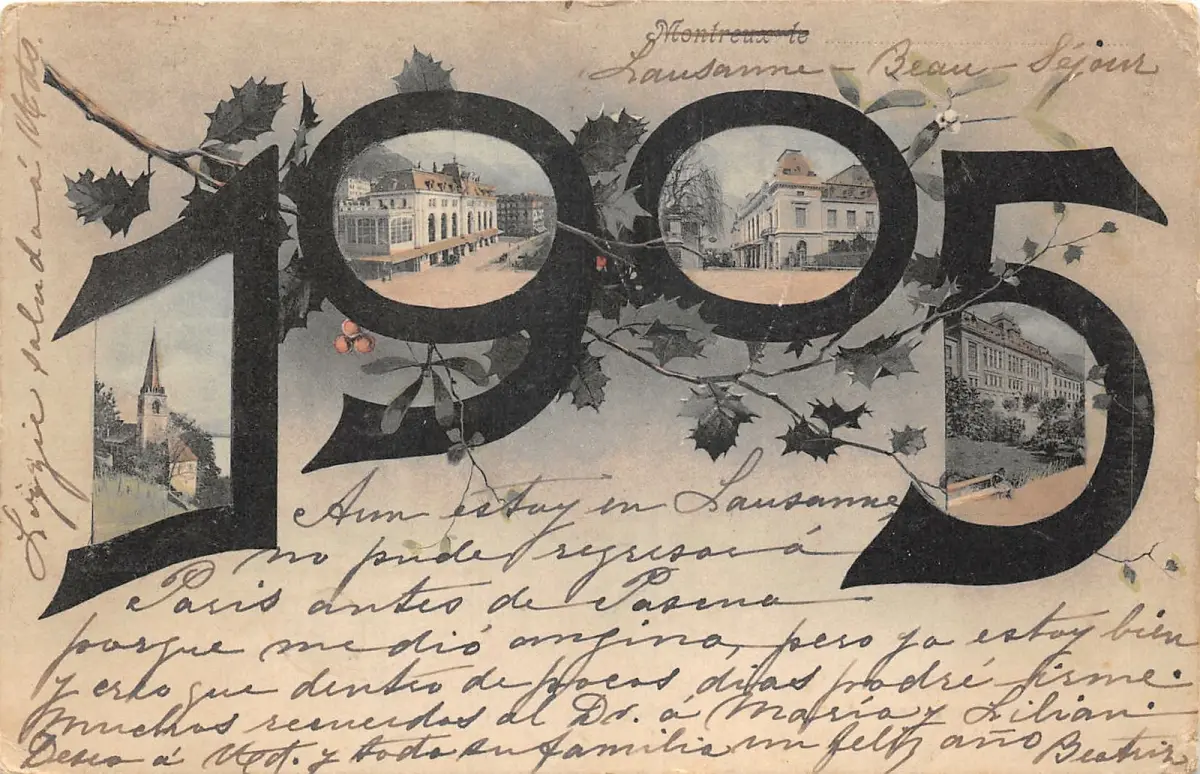 Montreux le
Lausanne - Beau - Séjour
1905
Aun estoy en Lausanne
no pude regresar á
Paris antes de Pascua
porque me dió angina, pero ya estoy bien
y creo que dentro de pocos dias podré irme.
Muchos recuerdos al Dr. á María y Lilian.
Deseo á Ud. y toda su familia un feliz año Beatriz
Lizzie saluda á Uds.